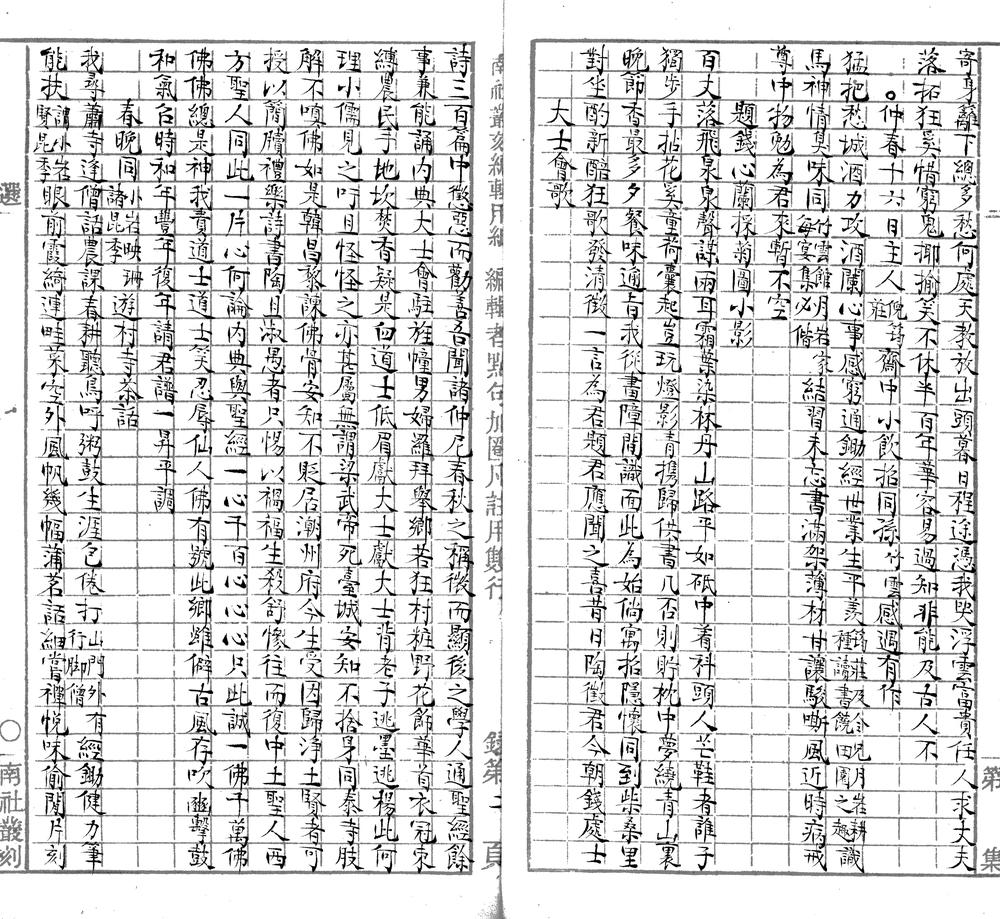 寄身籬下總多愁何處天教放出頭暮日程途憑我哭浮雲富貴任人求丈夫
落拓狂奚情窮鬼揶揄笑不休半百年華容易過知非能及古人不
。仲春十六日主人倪筠莊齋中小飲招同孫竹雲感遇有作
猛把愁城酒力攻酒闌心事感窮通鋤經世業生平羨筠莊及令兄月岩耕種讀書饒田園之趣識
馬神情臭味同竹雲館月岩家每宴集必偕結習未忘書滿架薄材甘讓駿嘶風近時病戒
尊中物勉為君來暫不空
題錢心蘭採菊圖小影
百丈落飛泉泉聲謀兩耳霜葉染林丹山路平如砥中着科頭人芒鞋者誰子
獨步手拈花奚童荷囊起豈玩燈影青攜歸供書几否則貯枕中夢繞青山裏
晚節香最多夕餐味逾旨我從畫障間識面此為始倘寓招隱懷同到柴桑里
對坐酌新醅狂歌發清徵一言為君題君應聞之喜昔日陶徵君今朝錢處士
大士會歌
詩三百篇中懲惡而勸善吾聞諸仲尼春秋之稱微而顯後之學人通聖經餘
事兼能誦內典大士會駐旌幢男婦羅拜舉鄉若狂村粧野花飾華首衣冠束
縛農民手地坎焚香疑是伯道士低眉獻大士獻大士背老子逃墨逃楊此何
理小儒見之吁且怪怪之亦甚屬無謂梁武帝死臺城安知不捨身同泰寺肢
解不嗔佛如是韓昌黎諫佛骨安知不貶居潮州府今生受因歸淨土賢者可
授以簡牘禮樂詩書陶且淑愚者只惕以禍福生殺舒慘往而復中土聖人西
方聖人同此一片心何論內典與聖經一心千百心心心只此誠一佛千萬佛
佛佛總是神我責道士道士笑忍辱仙人佛有號此鄉雖僻古風存吹豳擊鼓
和氣召時和年豐年復年請君譜一昇平調
春晚同小岩映珊諸昆季遊村寺茶話
我尋蕭寺逢僧話農課春耕聽鳥呼粥鼓生涯包倦打山門外有行脚僧經鋤健力筆
能扶謂小岩賢昆季眼前霞綺連畦菜空外風帆幾幅蒲茗話細嘗禪悅味偷閒片刻
南社叢刻編輯用紙
編輯者點句加圈凡註用雙行
錄第
頁
選
南社叢刻
第
集